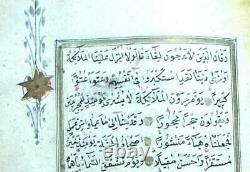 وقال الذين لا يرجون لقاءنا لولا انزل علينا الملائكة
او نرى ربنا لقد استكبروا في انفسهم وعتوا عتوا
كبيرا يوم يرون الملائكة لا بشرى يومئذ للمجرمين
ويقولون حجرا محجورا وقدمنا الى ما عملوا من عمل
فجعلناه هباء منثورا اصحاب الجنة يومئذ خير
مستقرا واحسن مقيلا ويوم تشقق السماء